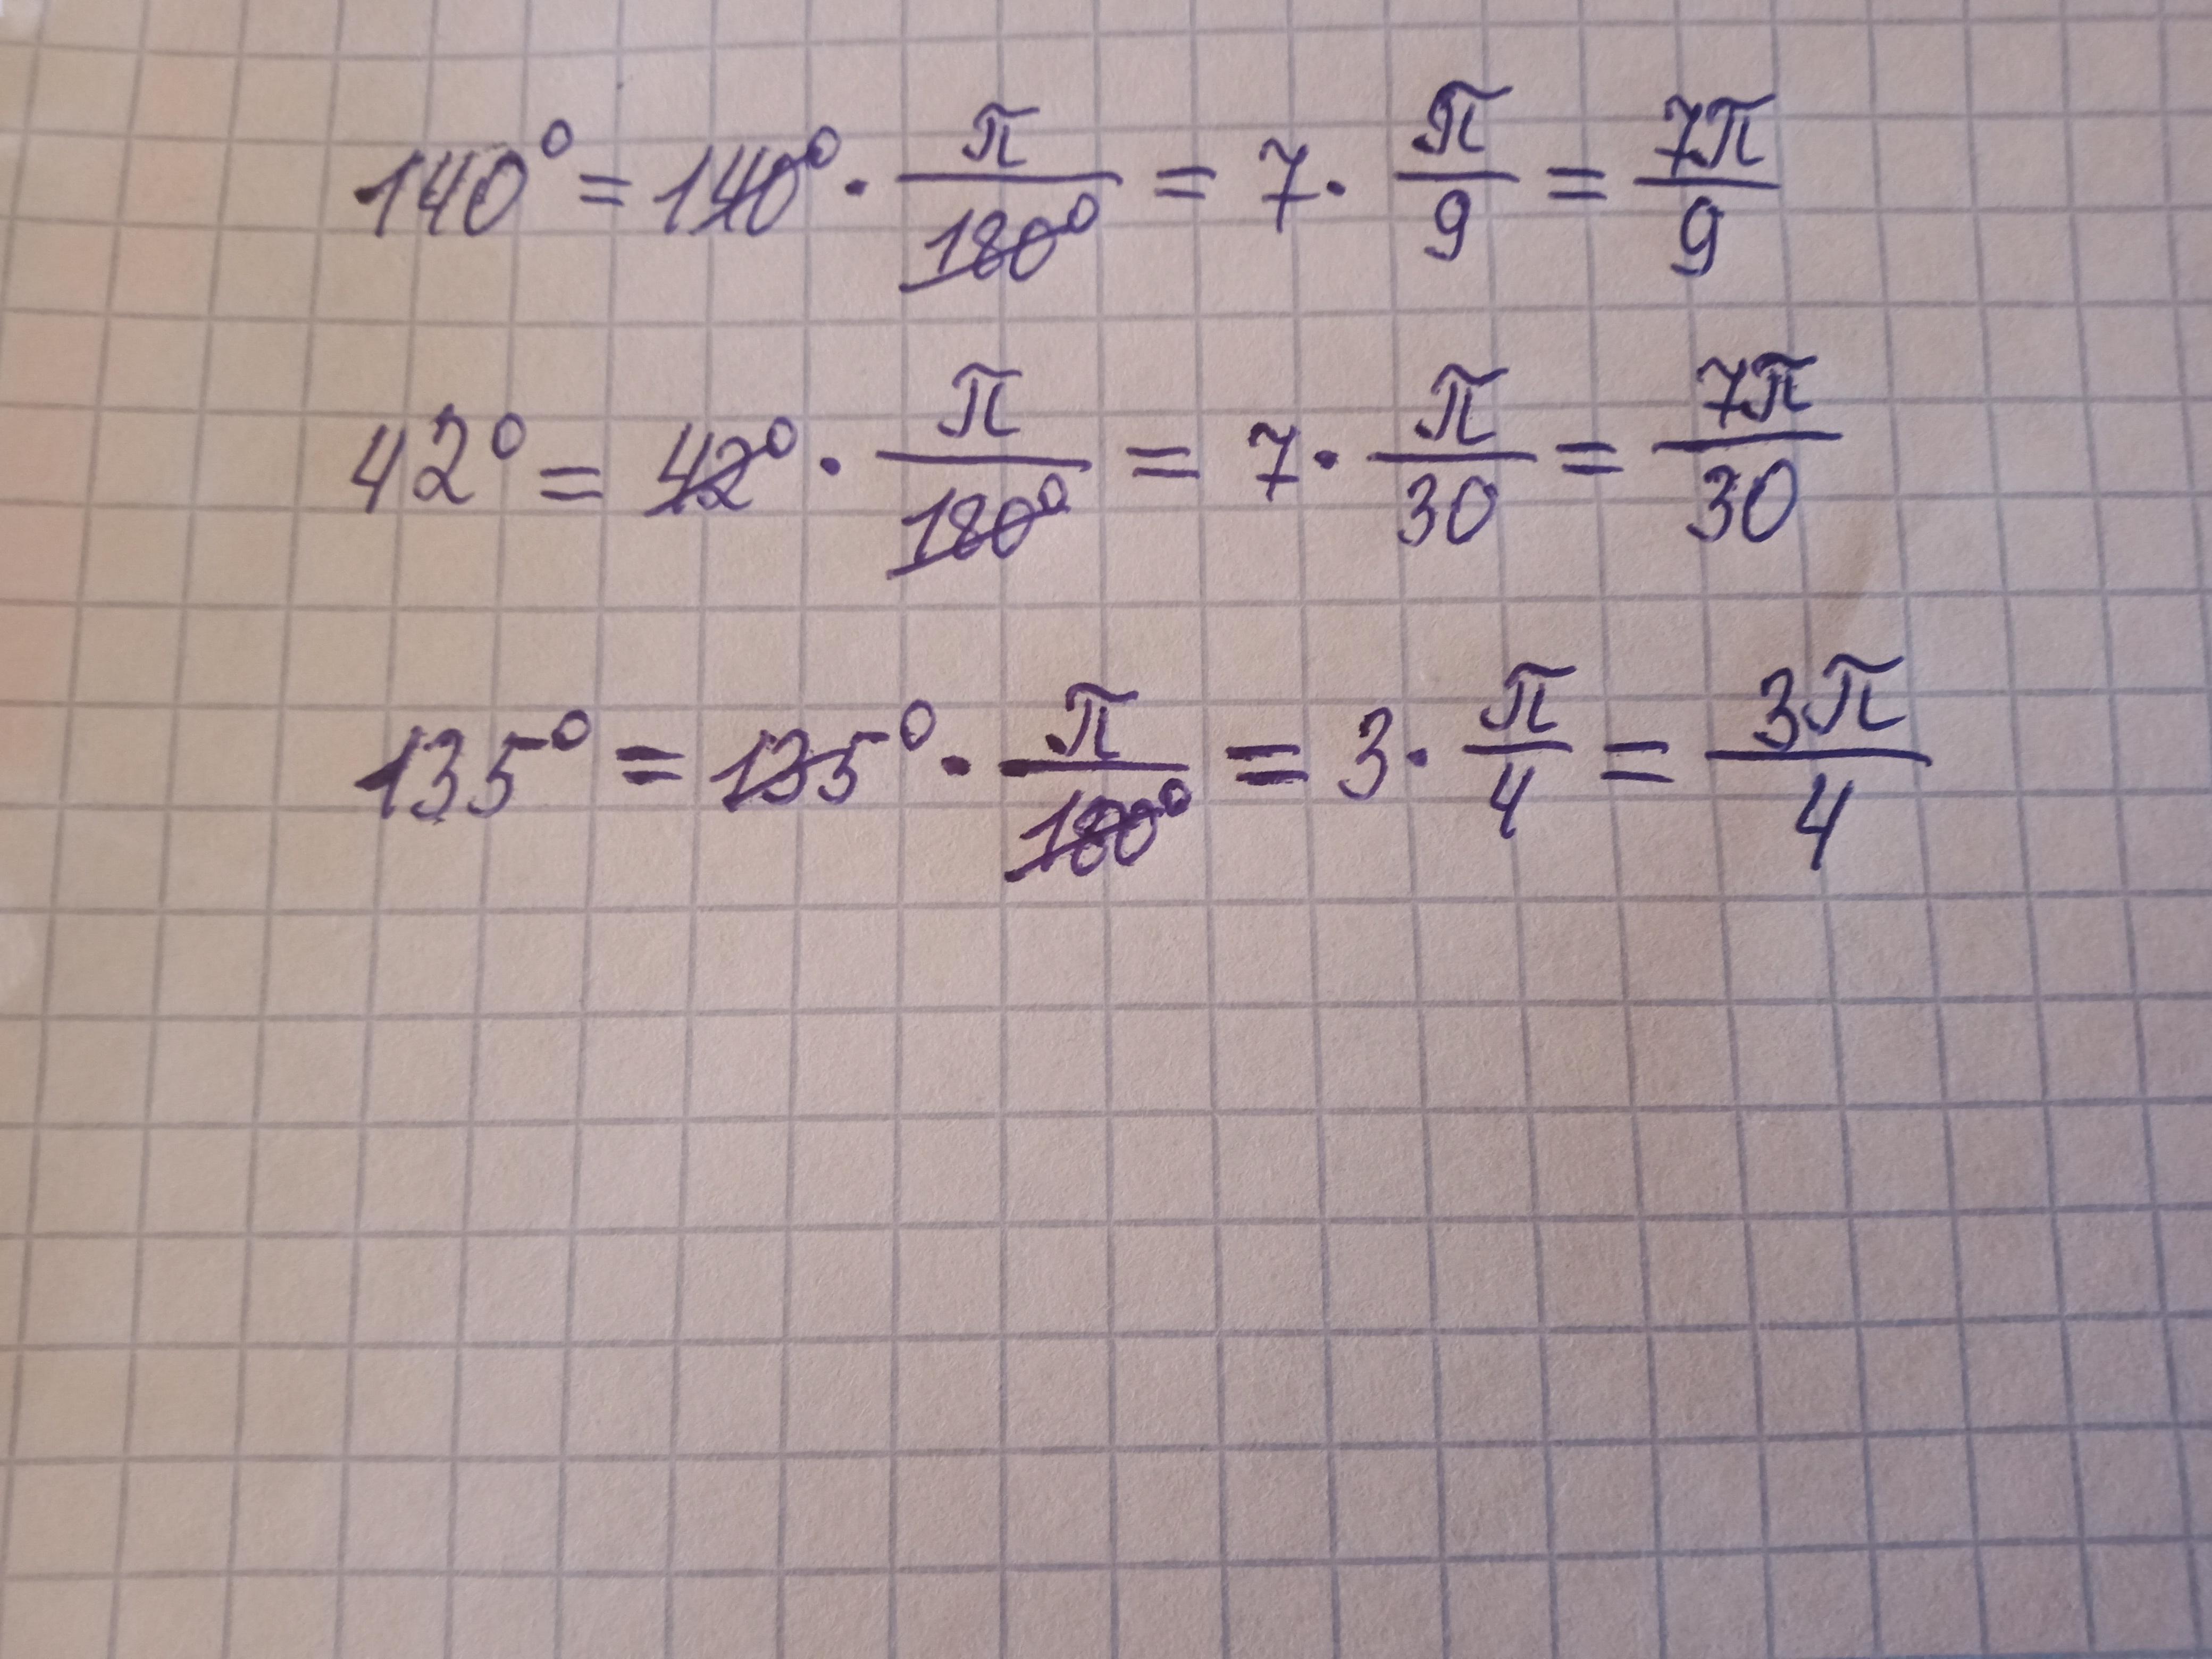 140° = 140° · π/180° = 7 · π/9 = 7π/9
42° = 42° · π/180° = 7 · π/30 = 7π/30
135° = 135° · π/180° = 3 · π/4 = 3π/4